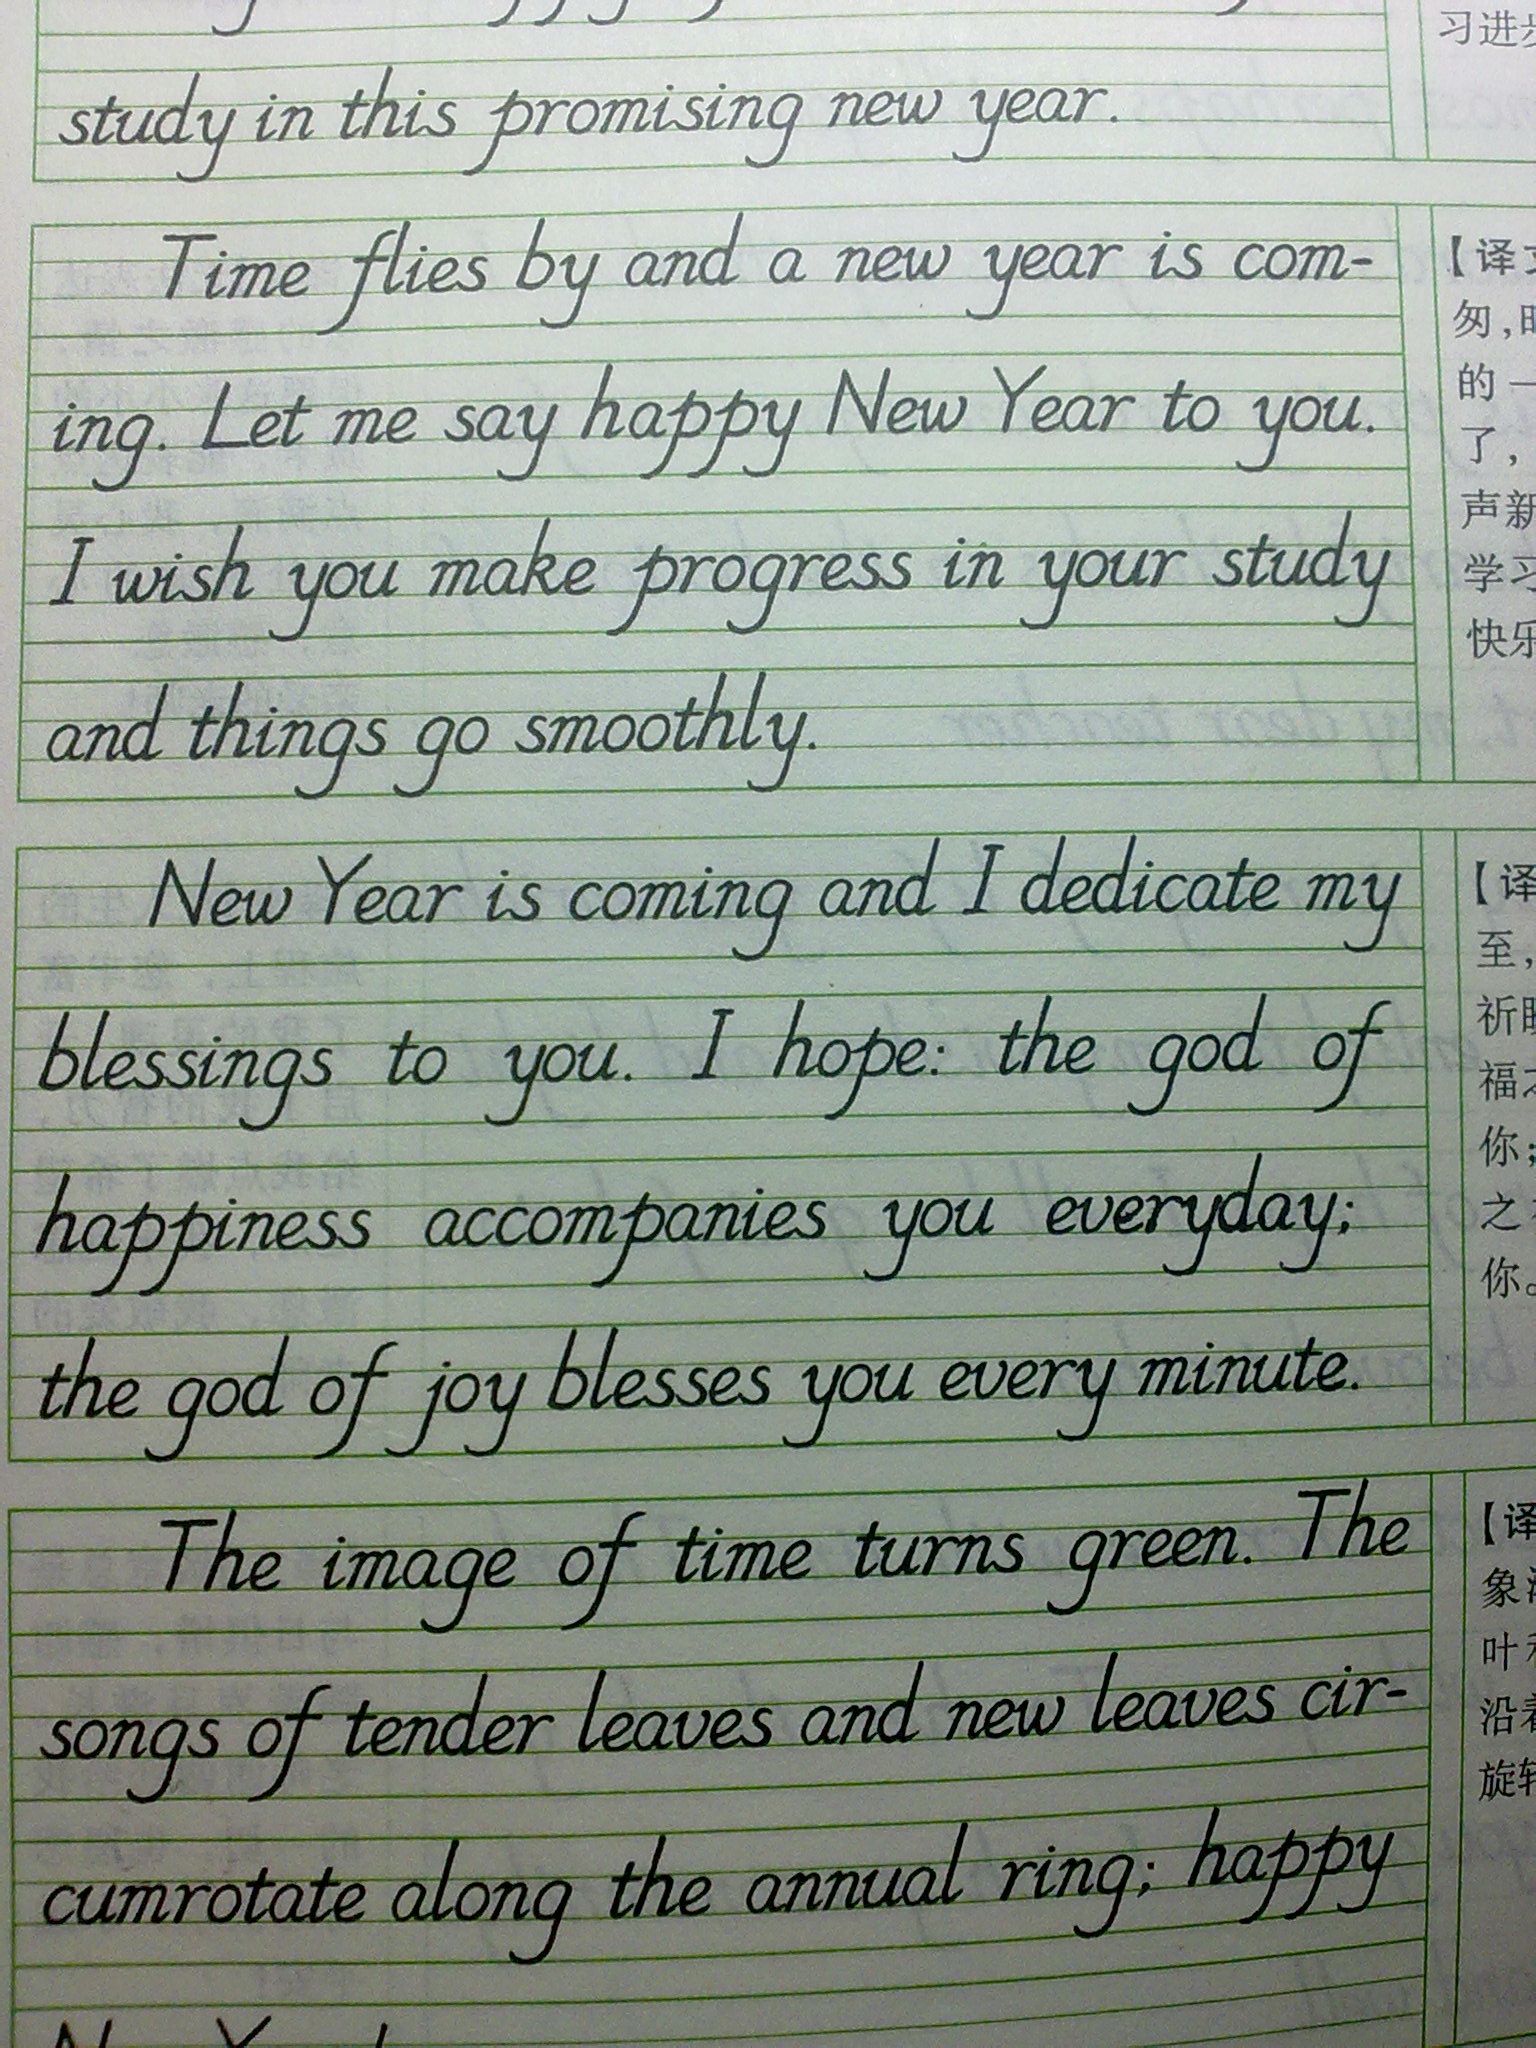 study in this promising new year.
Time flies by and a new year is com-
ing. Let me say happy New Year to you.
I wish you make progress in your study
and things go smoothly.
New Year is coming and I dedicate my
blessings to you. I hope: the god of
happiness accompanies you everyday;
the god of joy blesses you every minute.
The image of time turns green. The
songs of tender leaves and new leaves cir-
cumrotate along the annual ring; happy
习进步
【译文
匆,时
的一
了,
声新
学习
快乐
【译
至,
祈
福之
你;
之
你。
【译
象
叶和
沿着
旋转